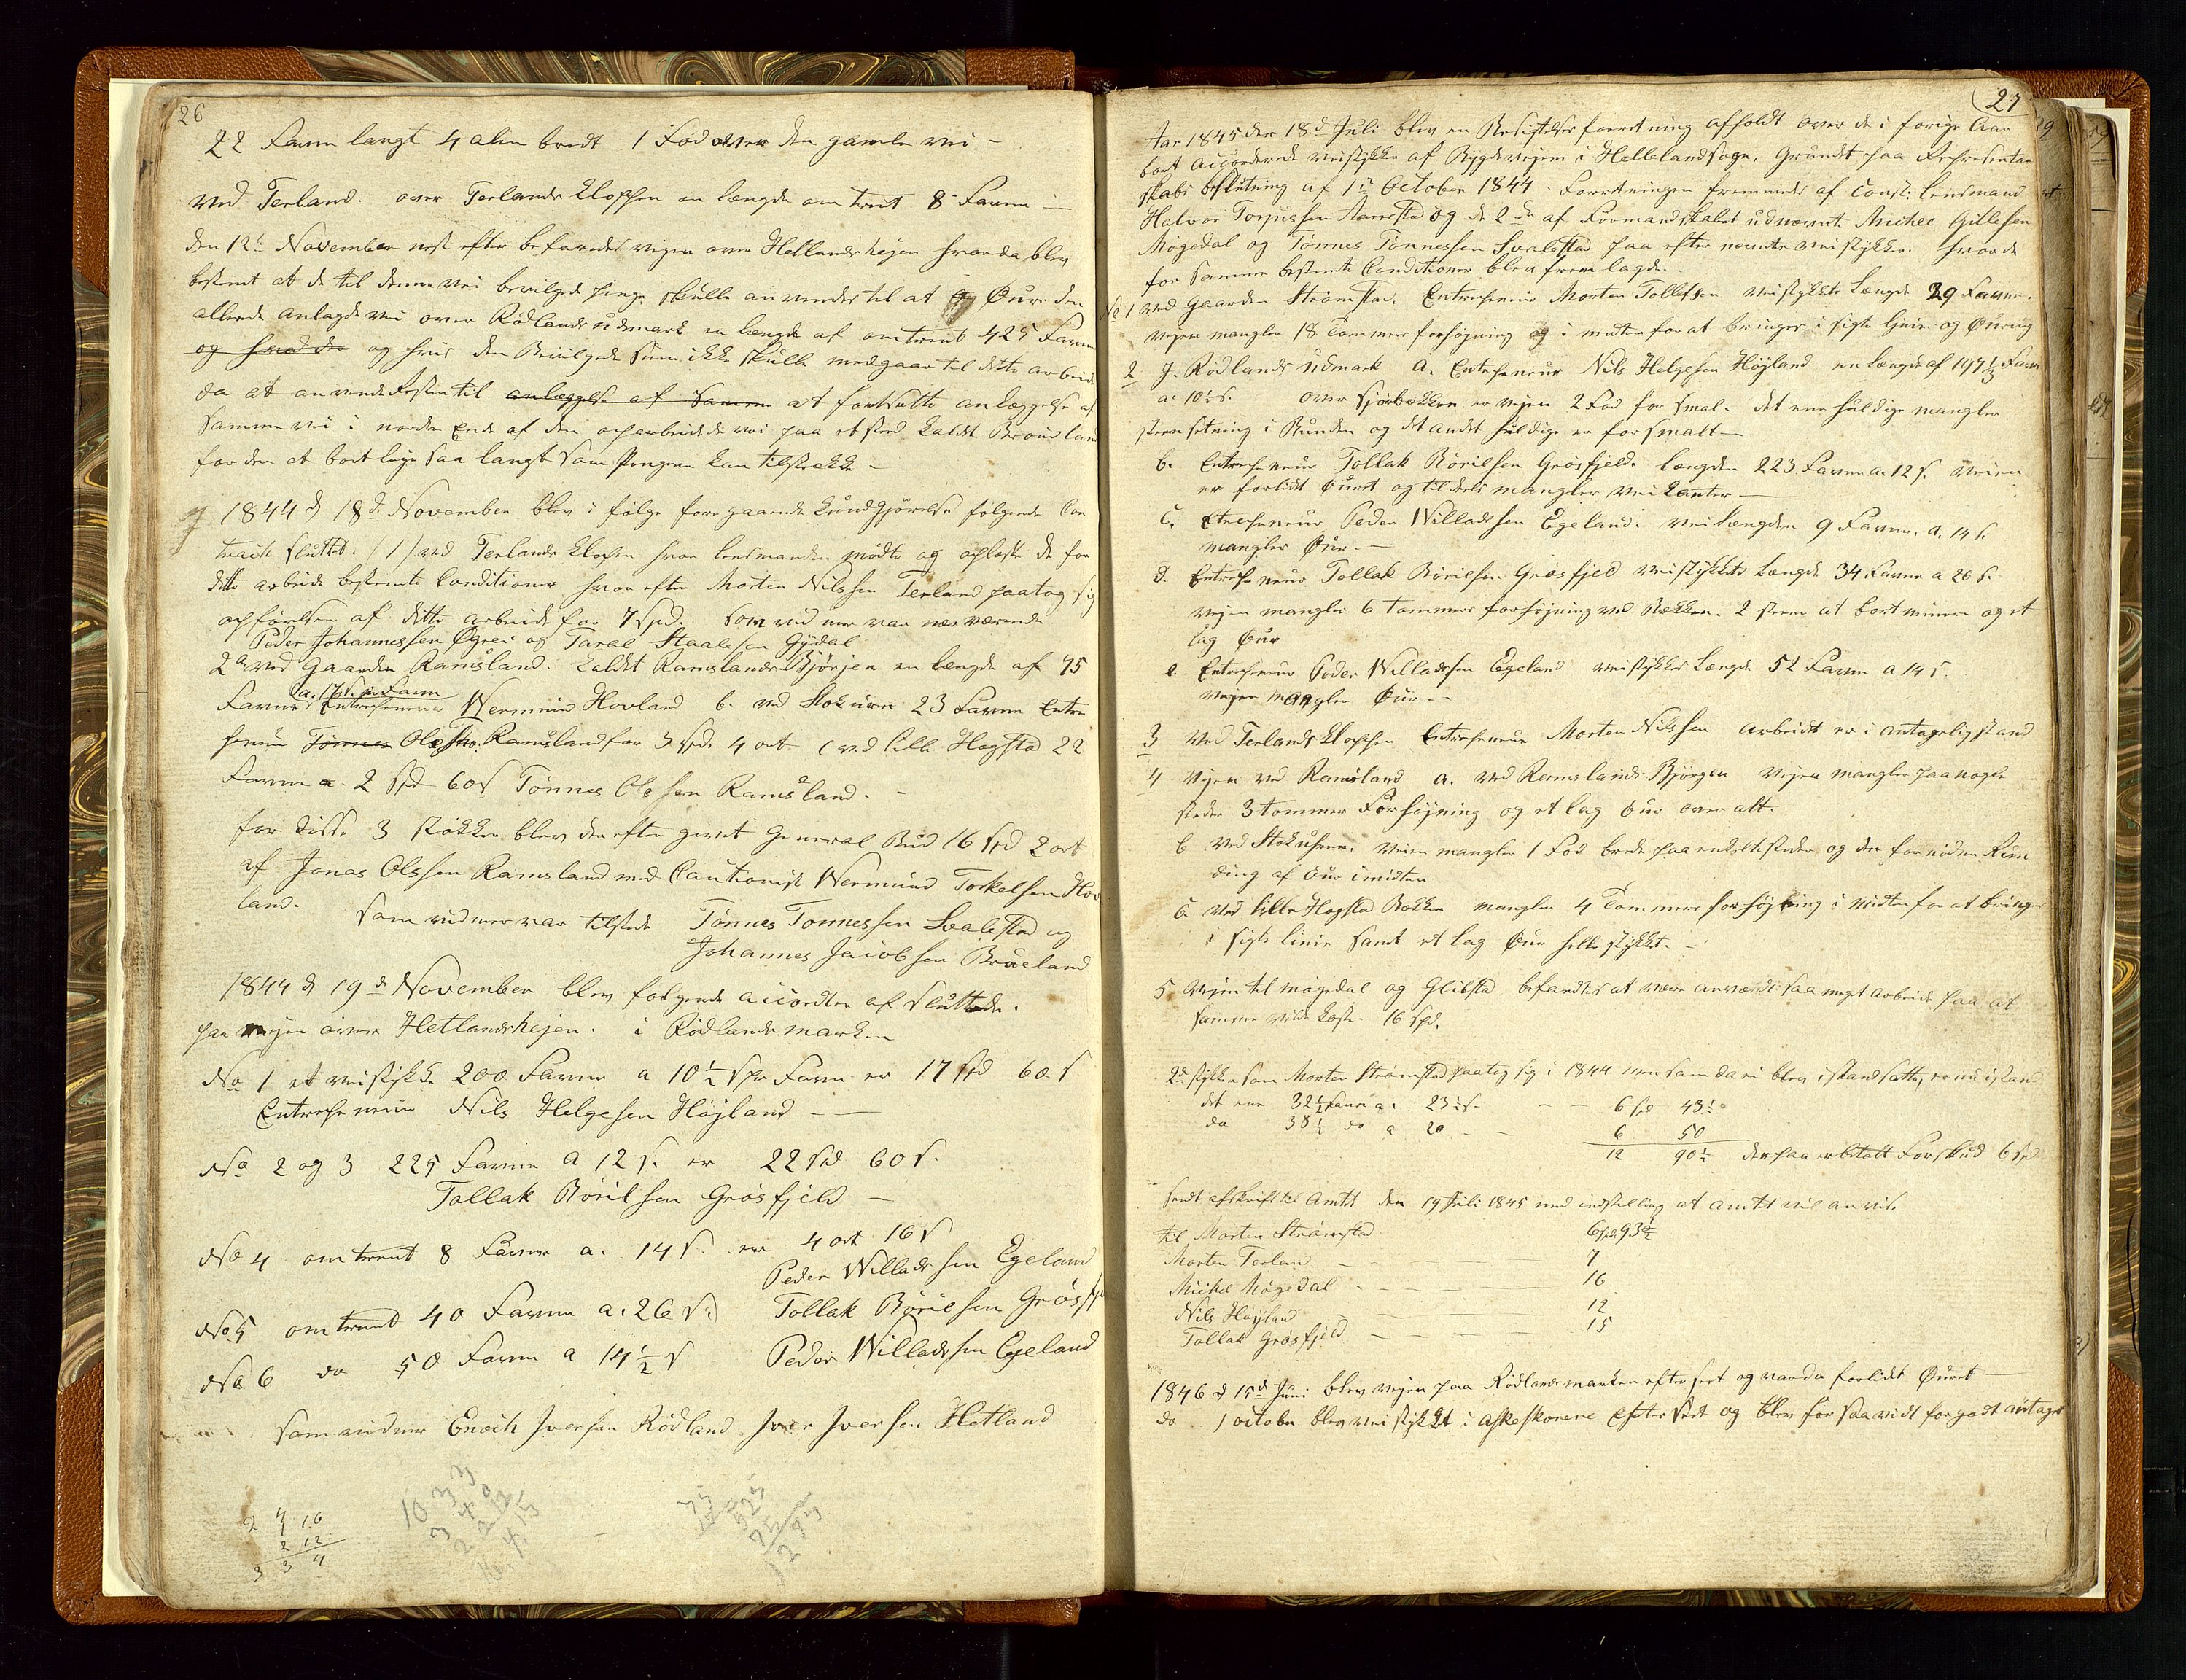 26
22 Favne langt 4 alen bredt 1 Fod over den gamle vei -
ved Terland. over Terlands Kloppen en længde omtrent 8 Favne -
den 12te November nest efter befaredes vejen over Hetlandshejen hvor da blev
bestemt at de til denne vei bevilgede penge skulle anvendes til at Øure den
allerede anlagde vei over Rødlands udmark en længde af omtrent 425 Favne
og hvis den Bevilgede Sum ikke skulle medgaar til dette arbeide
da at anvende Resten til anlæggelse af Samme at fortsætte anlæggelse af
Samme vei i nordre Ende af den oparbeidede vei paa et sted kaldt
for den at bortleje saa langt som Pengene kan tilstrække -
1844 d 18de November blev i følge foregaaende Kundgjørelse følgende Con
tract sluttet. (1) ved Terlands Klopen hvor lensmanden mødte og oplæste de for
dette arbeide bestemte Conditioner hvorefter Morten Nilssen Terland paatog sig
opførelsen af dette arbeide for 7 Spd. Som vidner var nærværende
Peder Johannessen Øgrei og Taral Staalesen Gydal
2 a ved Gaarden Ramsland. kaldt Ramslands Bjørjen en længde af 75
Favne a. 17 s. pr Favn Entreprenneur Wermund Hovland b. ved Stokuren 23 Favne Entre
preneur Tønnes Ole Ramsland for 3 spd. 4 ort c ved lille Hogstad 22
Favne a 2 Spd 60 s Tønnes Olsen Ramsland. -
for disse 3 støkker blev derefter gjort General Bud 16 Spd 2 ort
af Jonas Olssen Ramsland med Cautionist Wermund Torkelsen Hov
land. Som vidner var tilstede Tønnes Tonnessen Svalestad og
Johannes Jacobsen Brueland
1844 d 19de November blev følgende accorder afsluttede.
paa vejen over Hetlandshejen. i Rødlandsmarken
No 1 et veistykke 200 Favne a 10½ s pr Favn er 17 Spd 60 s
Entrepreneur Nils Helgesen Højland - -
No 2 og 3 225 Favne a 12 s. er 22 Spd 60 s.
Tollak Børilsen Grøsfjeld -
No 4 omtrent 8 Favne a. 14 s. er 4 ort 16 s
Peder Willadssen Egeland
No 5 omtrent 40 Favne a. 26 s. Tollak Børilsen Grøsfj
No 6 do 50 Favne a 14½ s Peder Willadssen Egeland
Som vidner Enoch Iversen Rødland Iver Iversen Hetland
2 4 16
2 12
3 3 4
27
Aar 1845 den 18de Juli blev en Besigtelsesforretning afholdt over de i forige Aar
bort accorderede veistykker af Bygdevejene i Hellelandsogn, Grundet paa Representan
skabs beslutning af 1ste October 1844. Forretningen fremmedes af Const: Lensmand
Halvor Torjussen Aarrestad og de 2de af Formandskabet udnævnte Michel Gillesen
Møgedal og Tønnes Tønnessen Svalestad paa efter nævnte veistykker. hvor de
for samme bestemte Conditioner blev fremlagde.
No 1 ved Gaarden Strømstad. Entrepreneur Morten Tollefsen veistykkets Længde 39 Favne.
vejen mangler 18 Tommers forhøyning og i midten for at bringes i sigte linie og Øuring
2 J. Rødlands Udmark a. Entrepreneur Nils Helgesen Højland en længde af 197⅓ Favn
a. 10½ s. over sjorbækken er vejen 2 Fod for smal. det ene huldige mangler
steensetning i Bunden og det andet huldige er for smalt -
b. Entrepreneur Tollak Børilsen Grøsfjeld. længden 223 Favne a. 12 s. veien
er forlidt Øuret og tildels mangler veikanter -
c. Etrepreneur Peder Willadssen Egeland. veilængden 9 Favne. a. 14 s.
mangler Øur. -
d. Entrepreneur Tollak Børilsen Grøsfjeld veistykkets Længde 34 Favne a 26 s.
vejen mangler 6 tommers forhøjning ved Bekken. 2 steene at bortminere og et
lag Øur
e Entrepreneur Peder Willadssen Egeland veistykkets Længde 52 Favne a 14 s.
vejen mangler Øur. -
3 Ved Terlands kloppen Entrepreneur Morten Nilssen arbeidet er i antagelig stand
4 Vejen ved Ramsland a. ved Ramslands Bjørgen vejen mangler paa nogle
steder 3 tommer Forhøjning og et lag our over alt.
b ved Stokuren. Veien mangler 1 Fod brede paa enkelte steder og den fornødne Run
ding af Our i midten
c ved lille Hogstad Bække mangler 4 Tommers forhøjning i Midten for at bringes
i sigte linie samt et lag Øur hele stykket. -
5 Vejen til Møgedal og Glibstad befandtes at være anvendt saa meget arbeide paa at
samme vilde koste 16 Spd.
2de stykker som Morten Strømstad paatog sig i 1844 men som da ei blev istandsatte, er nu istand
det ene 32½ Favn a. 23½ s. - - 6 spd 43½
do 38½ do a 20 - - 6 50
12 90½ derpaa erholdt Forskud 6 Spd
sendt afskrift til Amtet den 19 Juli 1845 med indstilling at amtet vil anvise
til Morten Strømstad 6 spd 93½
Morten Terland - - - 7
Michel Møgedal - - - 16
Nils Højland 12
Tollak Grøsfjeld - - - 15
1846 d 15de Juni blev vejen paa Rødlandsmarken efterseet og var da forlidt Øuret -
do 1 october blev veistykket i Askeskorene Efterseet og blev for saavidt for godt antaget